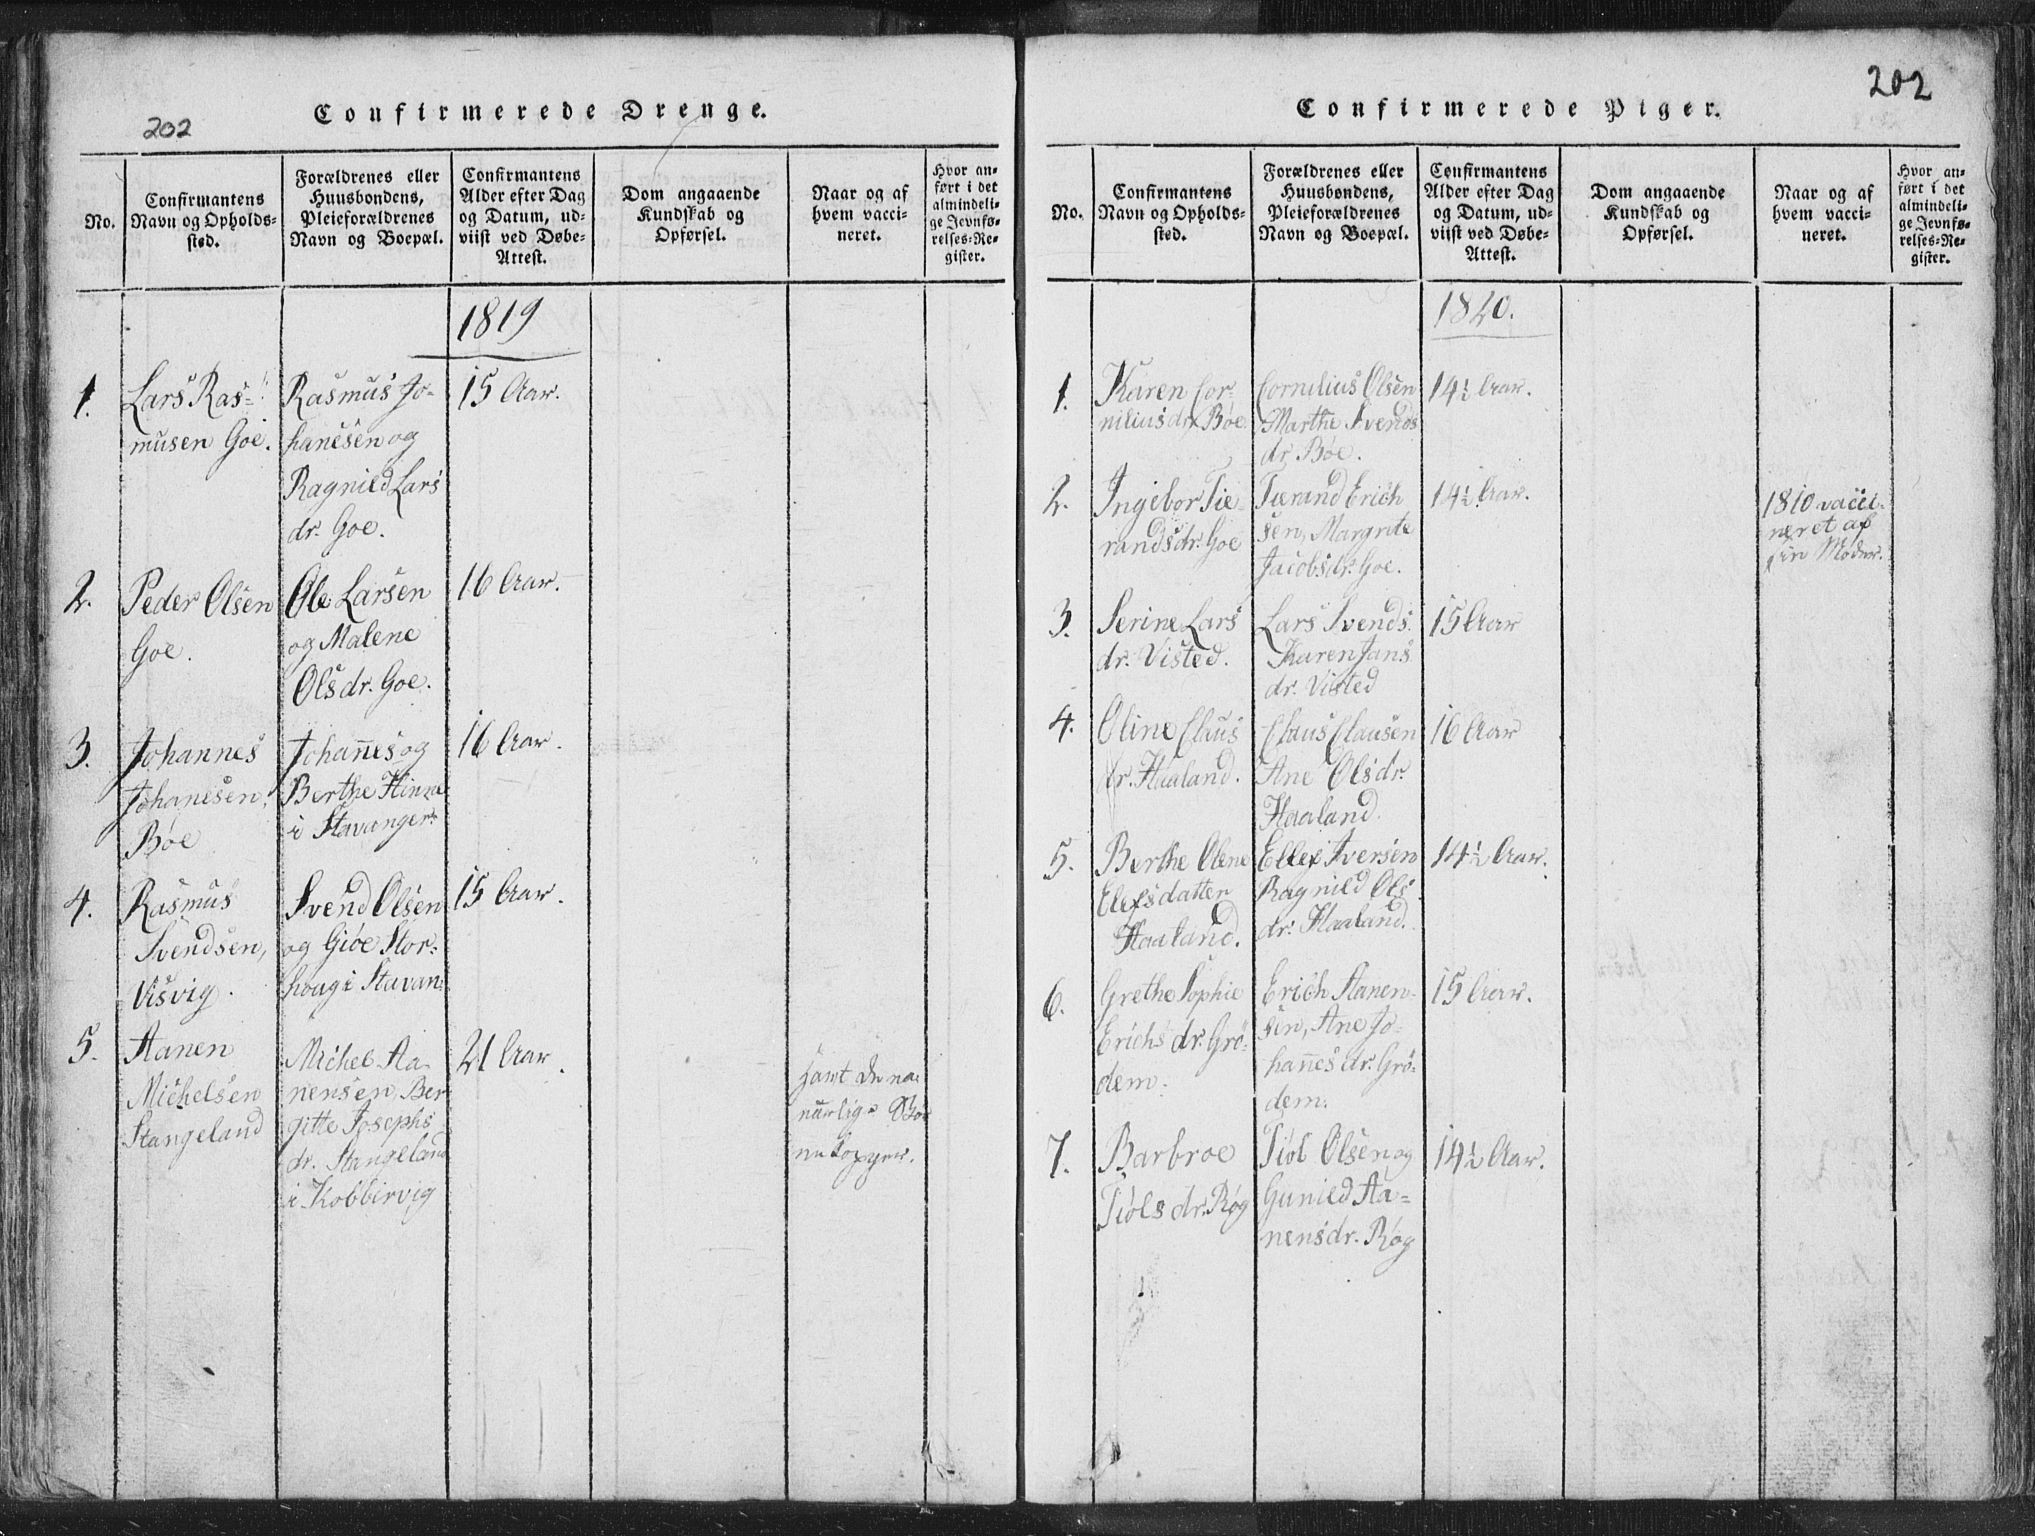 202
Confirmerede Drenge.
No.
Confirmantens
Navn og Opholds-
sted.
Forældrenes eller
Huusbondens,
Pleieforældrenes
Navn og Boepæl.
Confirmantens
Alder efter Dag
og Datum, ud-
viist ved Døbe-
Attest.
Dom angaaende
Kundskab og
Opførsel.
Naar og af
hvem vacci-
neret.
Hvor an-
ført i det
almindeli-
ge Jevnfø-
relses-Re-
gister.
1819
1.
Lars Ras-
musen Goe.
Rasmus Jo-
hanesen og
Ragnild Lars
dr. Goe.
15 Aar.
2.
Peder Olsen
Goe.
Ole Larsen
og Malene
Olsdr. Goe.
16 Aar.
3.
Johannes
Johanesen,
Bøe
Johannes og
Berthe
i Stavanger
16 Aar.
4.
Rasmus
Svendsen,
Visvig.
Svend Olsen
og Giøe Stor-
houg i Stavan:
15 Aar.
5.
Aanen
Michelsen
Stangeland
Michel Aa-
nensen Ber
gitte Josephs
dr. Stangeland
i Kobbervig
21 Aar.
havt de na
turlige
Kopper.
202
Confirmerede Piger.
No.
Confirmantens
Navn og Opholds-
sted.
Forældrenes eller
Huusbondens,
Pleieforældrenes
Navn og Boepæl.
Confirmantens
Alder efter Dag
og Datum, ud-
viist ved Døbe-
Attest.
Dom angaaende
Kundskab og
Opførsel.
Naar og af
hvem vacci-
neret.
Hvor an-
ført i det
almindeli-
ge Jevnfø-
relses-Re-
gister.
1820.
1.
Karen Cor-
niliusdr. Bøe
Cornilius Olsen
Marthe Svends
dr Bøe.
14½ Aar.
2.
Ingebor Tie
randsdr. Goe
Tierand Erich
sen, Margrete
Jacobsdr. Goe.
14½ Aar.
1810 vacci-
neret af
sin Moder.
3.
Serine Lars
dr. Visted.
Lars Svends:
Karen Jans
dr. Visted
15 Aar
4.
Oline Claus
dr. Haaland.
Claus Clausen
Ane Olsdr.
Haaland.
16 Aar
5.
Berthe Olene
Elefsdatter
Haaland.
Ellef Iversen
Ragnild Ols
dr. Haaland.
14½ Aar.
6.
Grethe Sophie
Erichs dr. Grö-
dem.
Erich Aanen-
sen, Ane Jo-
hannes dr. Grö-
dem.
15 Aar.
7.
Barbroe
Tiøls dr. Røg
Tiøl Olsen og
Gunild Aa-
nensdr. Røg
14½ Aar.